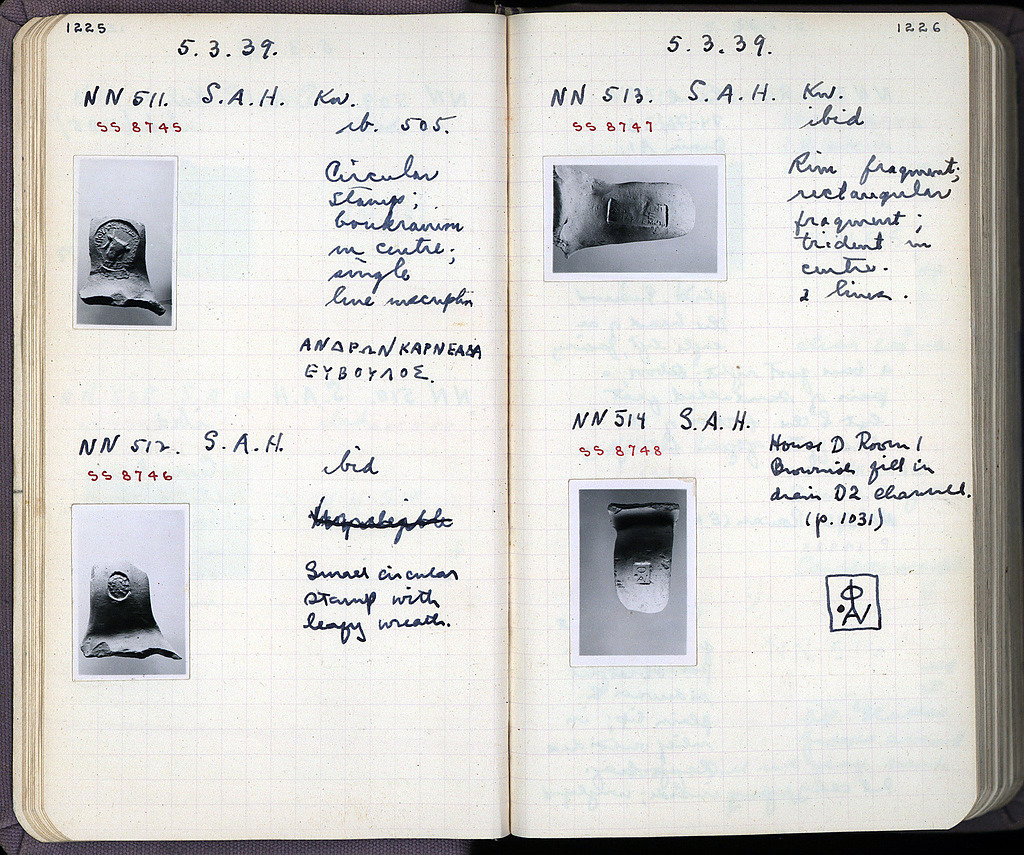 1225
5.3.39.
NN 511. S.A.H. Kn.
SS 8745
ib. 505.
Circular
stamp;
boukranium
in centre;
single
line inscription
ΑΝΔΡΩΝ ΚΑΡΝΕΑΔΑ
ΕΥΒΟΥΛΟΣ.
NN 512. S.A.H.
SS 8746
ibid
Small circular
stamp with
leafy wreath.
1226
5.3.39.
NN 513. S.A.H. Kn.
SS 8747
ibid
Rim fragment;
rectangular
fragment;
trident in
centre.
2 lines.
NN 514 S.A.H.
SS 8748
House D Room 1
Brownish fill in
drain D2 channel.
(p. 1031)